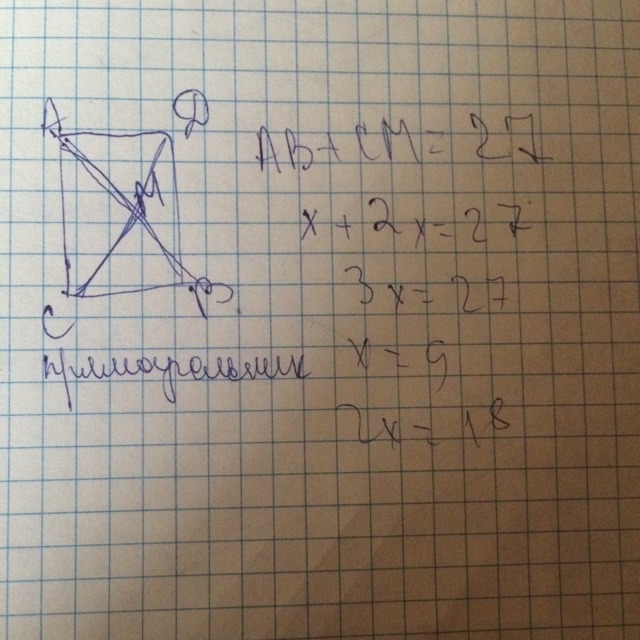 А Д
М
С В
прямоугольник
АВ + СМ = 27
x + 2x = 27
3x = 27
x = 9
2x = 18